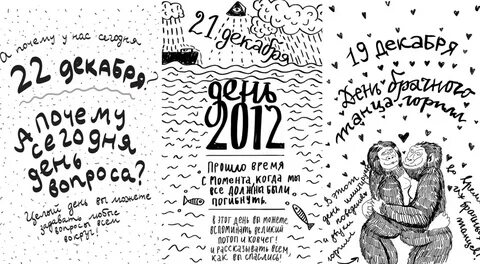 А почему у нас сегодня
22 декабря
А почему
сегодня
день
вопроса?
Целый день вы можете
задавать любые
вопросы всем
вокруг!
21 декабря
день
2012
Прошло время
с момента, когда мы
все должны были
погибнуть.
В этот день вы можете
вспоминать великий
потоп и ковчег!
и рассказывать всем,
как вы спаслись!
19 декабря
День брачного
танца горилл
в этот
день
горилл
время
брачных
танцев!